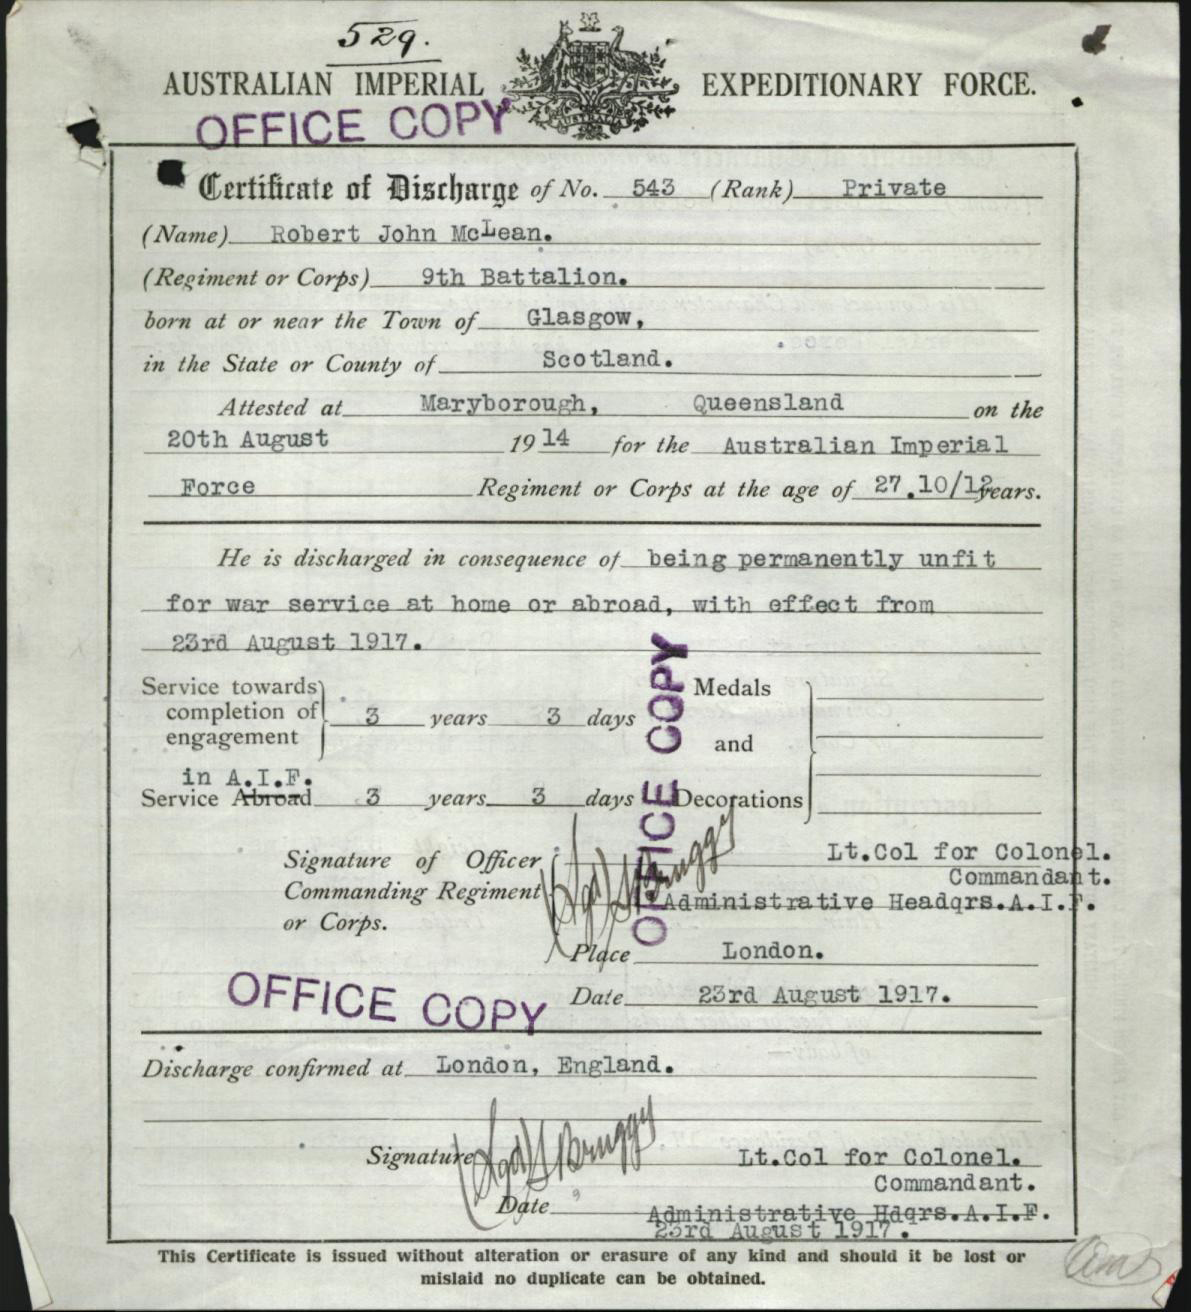 529.
AUSTRALIAN IMPERIAL EXPEDITIONARY FORCE.
AUSTRALIA
OFFICE COPY
Certificate of Discharge of No. 543 (Rank) Private
(Name) Robert John McLean.
(Regiment or Corps) 9th Battalion.
born at or near the Town of Glasgow,
in the State or County of Scotland.
Attested at Maryborough, Queensland on the
20th August 1914 for the Australian Imperial
Force Regiment or Corps at the age of 27.10/12 years.
He is discharged in consequence of being permanently unfit
for war service at home or abroad, with effect from
23rd August 1917.
Service towards
completion of
engagement 3 years 3 days
Medals
and
Decorations
in A.I.F.
Service Abroad 3 years 3 days
OFFICE COPY
Signature of Officer
Commanding Regiment
or Corps.
(Sgd) Bruggy
Lt.Col for Colonel.
Commandant.
Administrative Headqrs.A.I.F.
Place London.
OFFICE COPY
Date 23rd August 1917.
Discharge confirmed at London, England.
Signature (Sgd) Bruggy Lt.Col for Colonel.
Commandant.
Date Administrative Hdqrs.A.I.F.
23rd August 1917.
This Certificate is issued without alteration or erasure of any kind and should it be lost or
mislaid no duplicate can be obtained.